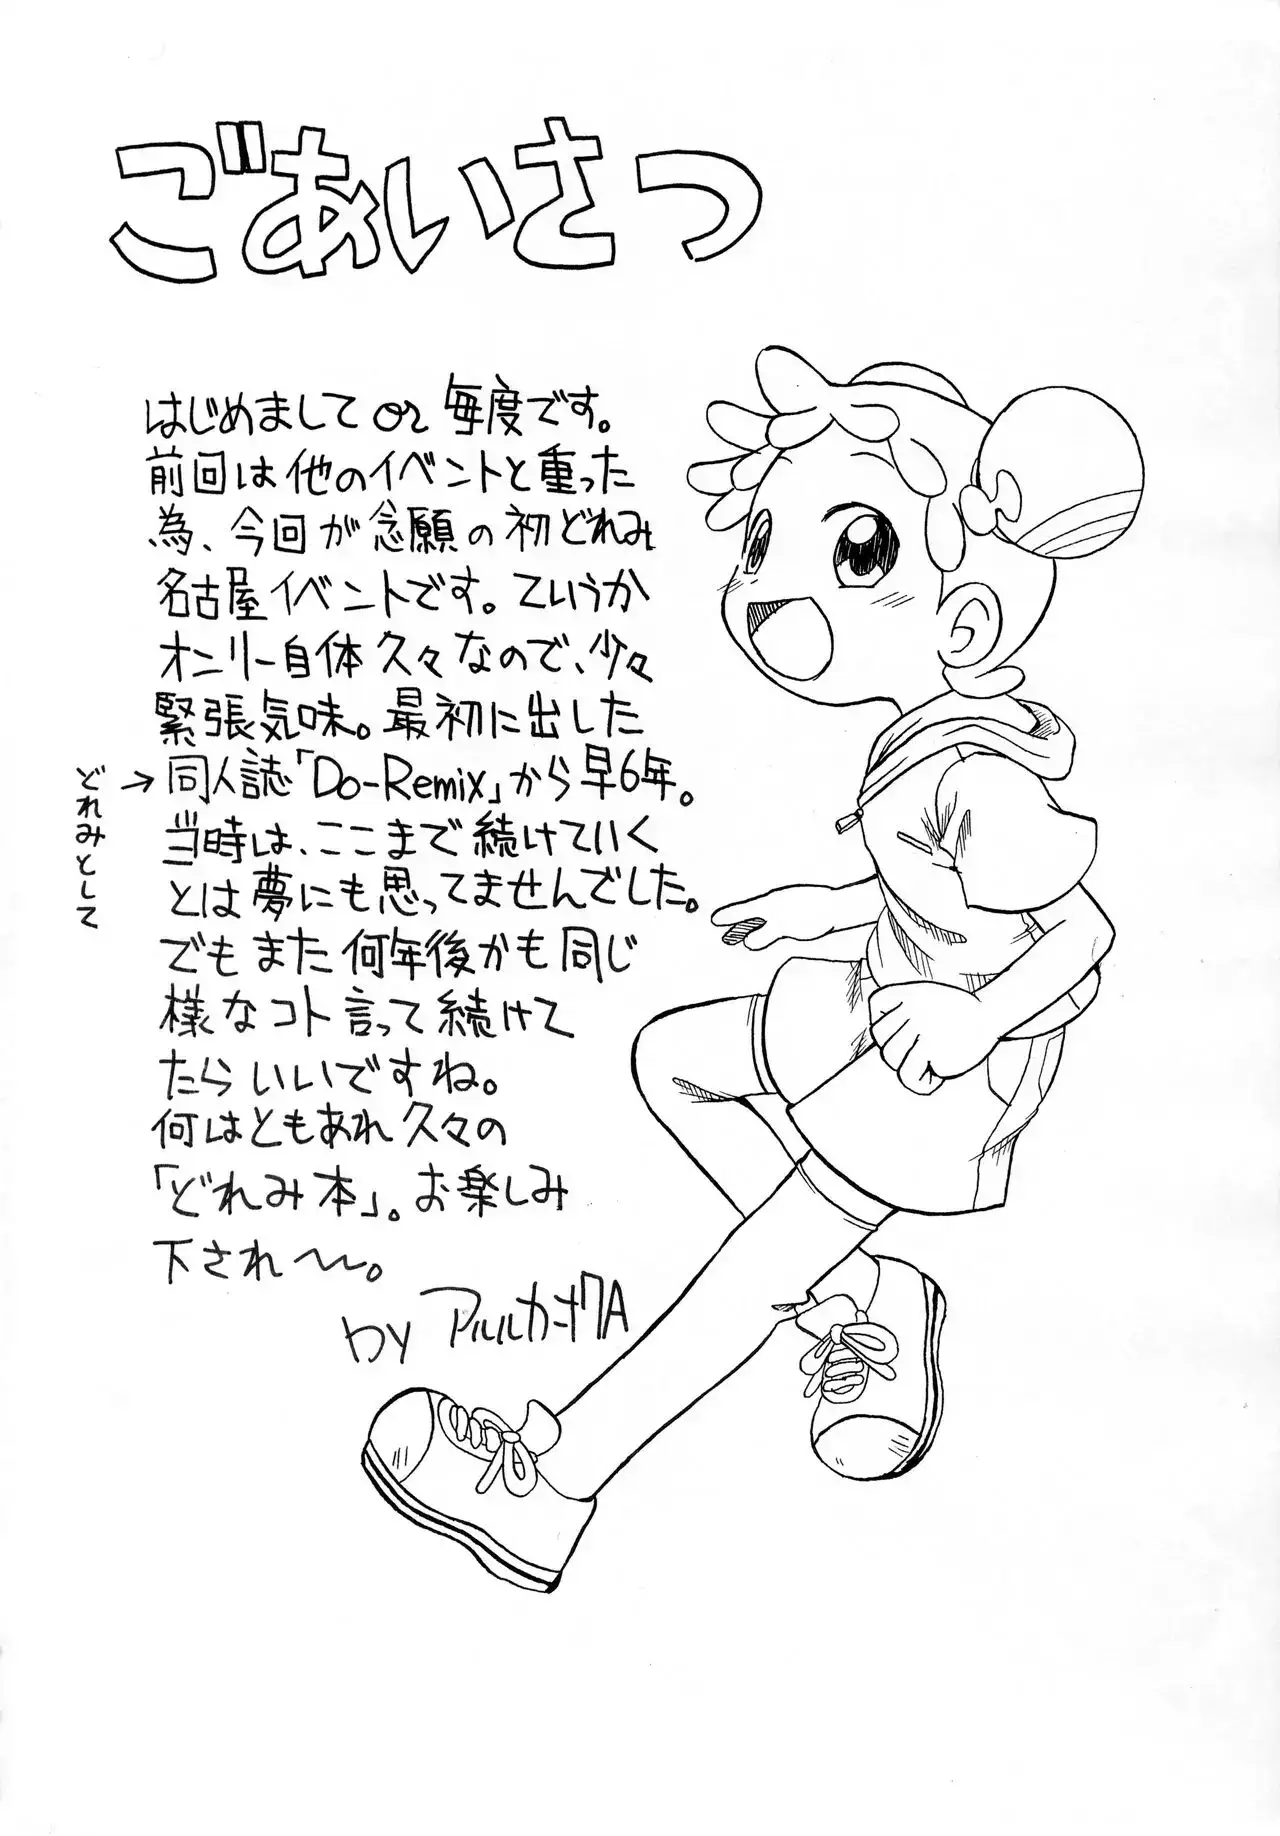 ごあいさつ
はじめまして or 毎度です。
前回は他のイベントと重った
為、今回が念願の初どれみ
名古屋イベントです。ていうか
オンリー自体久々なので、少々
緊張気味。最初に出した
どれみとして→同人誌「Do-Remix」から早6年。
当時は、ここまで続けていく
とは夢にも思ってませんでした。
でもまた何年後かも同じ
様なコト言って続けて
たらいいですね。
何はともあれ久々の
「どれみ本」。お楽しみ
下され〜。
by アルルカ